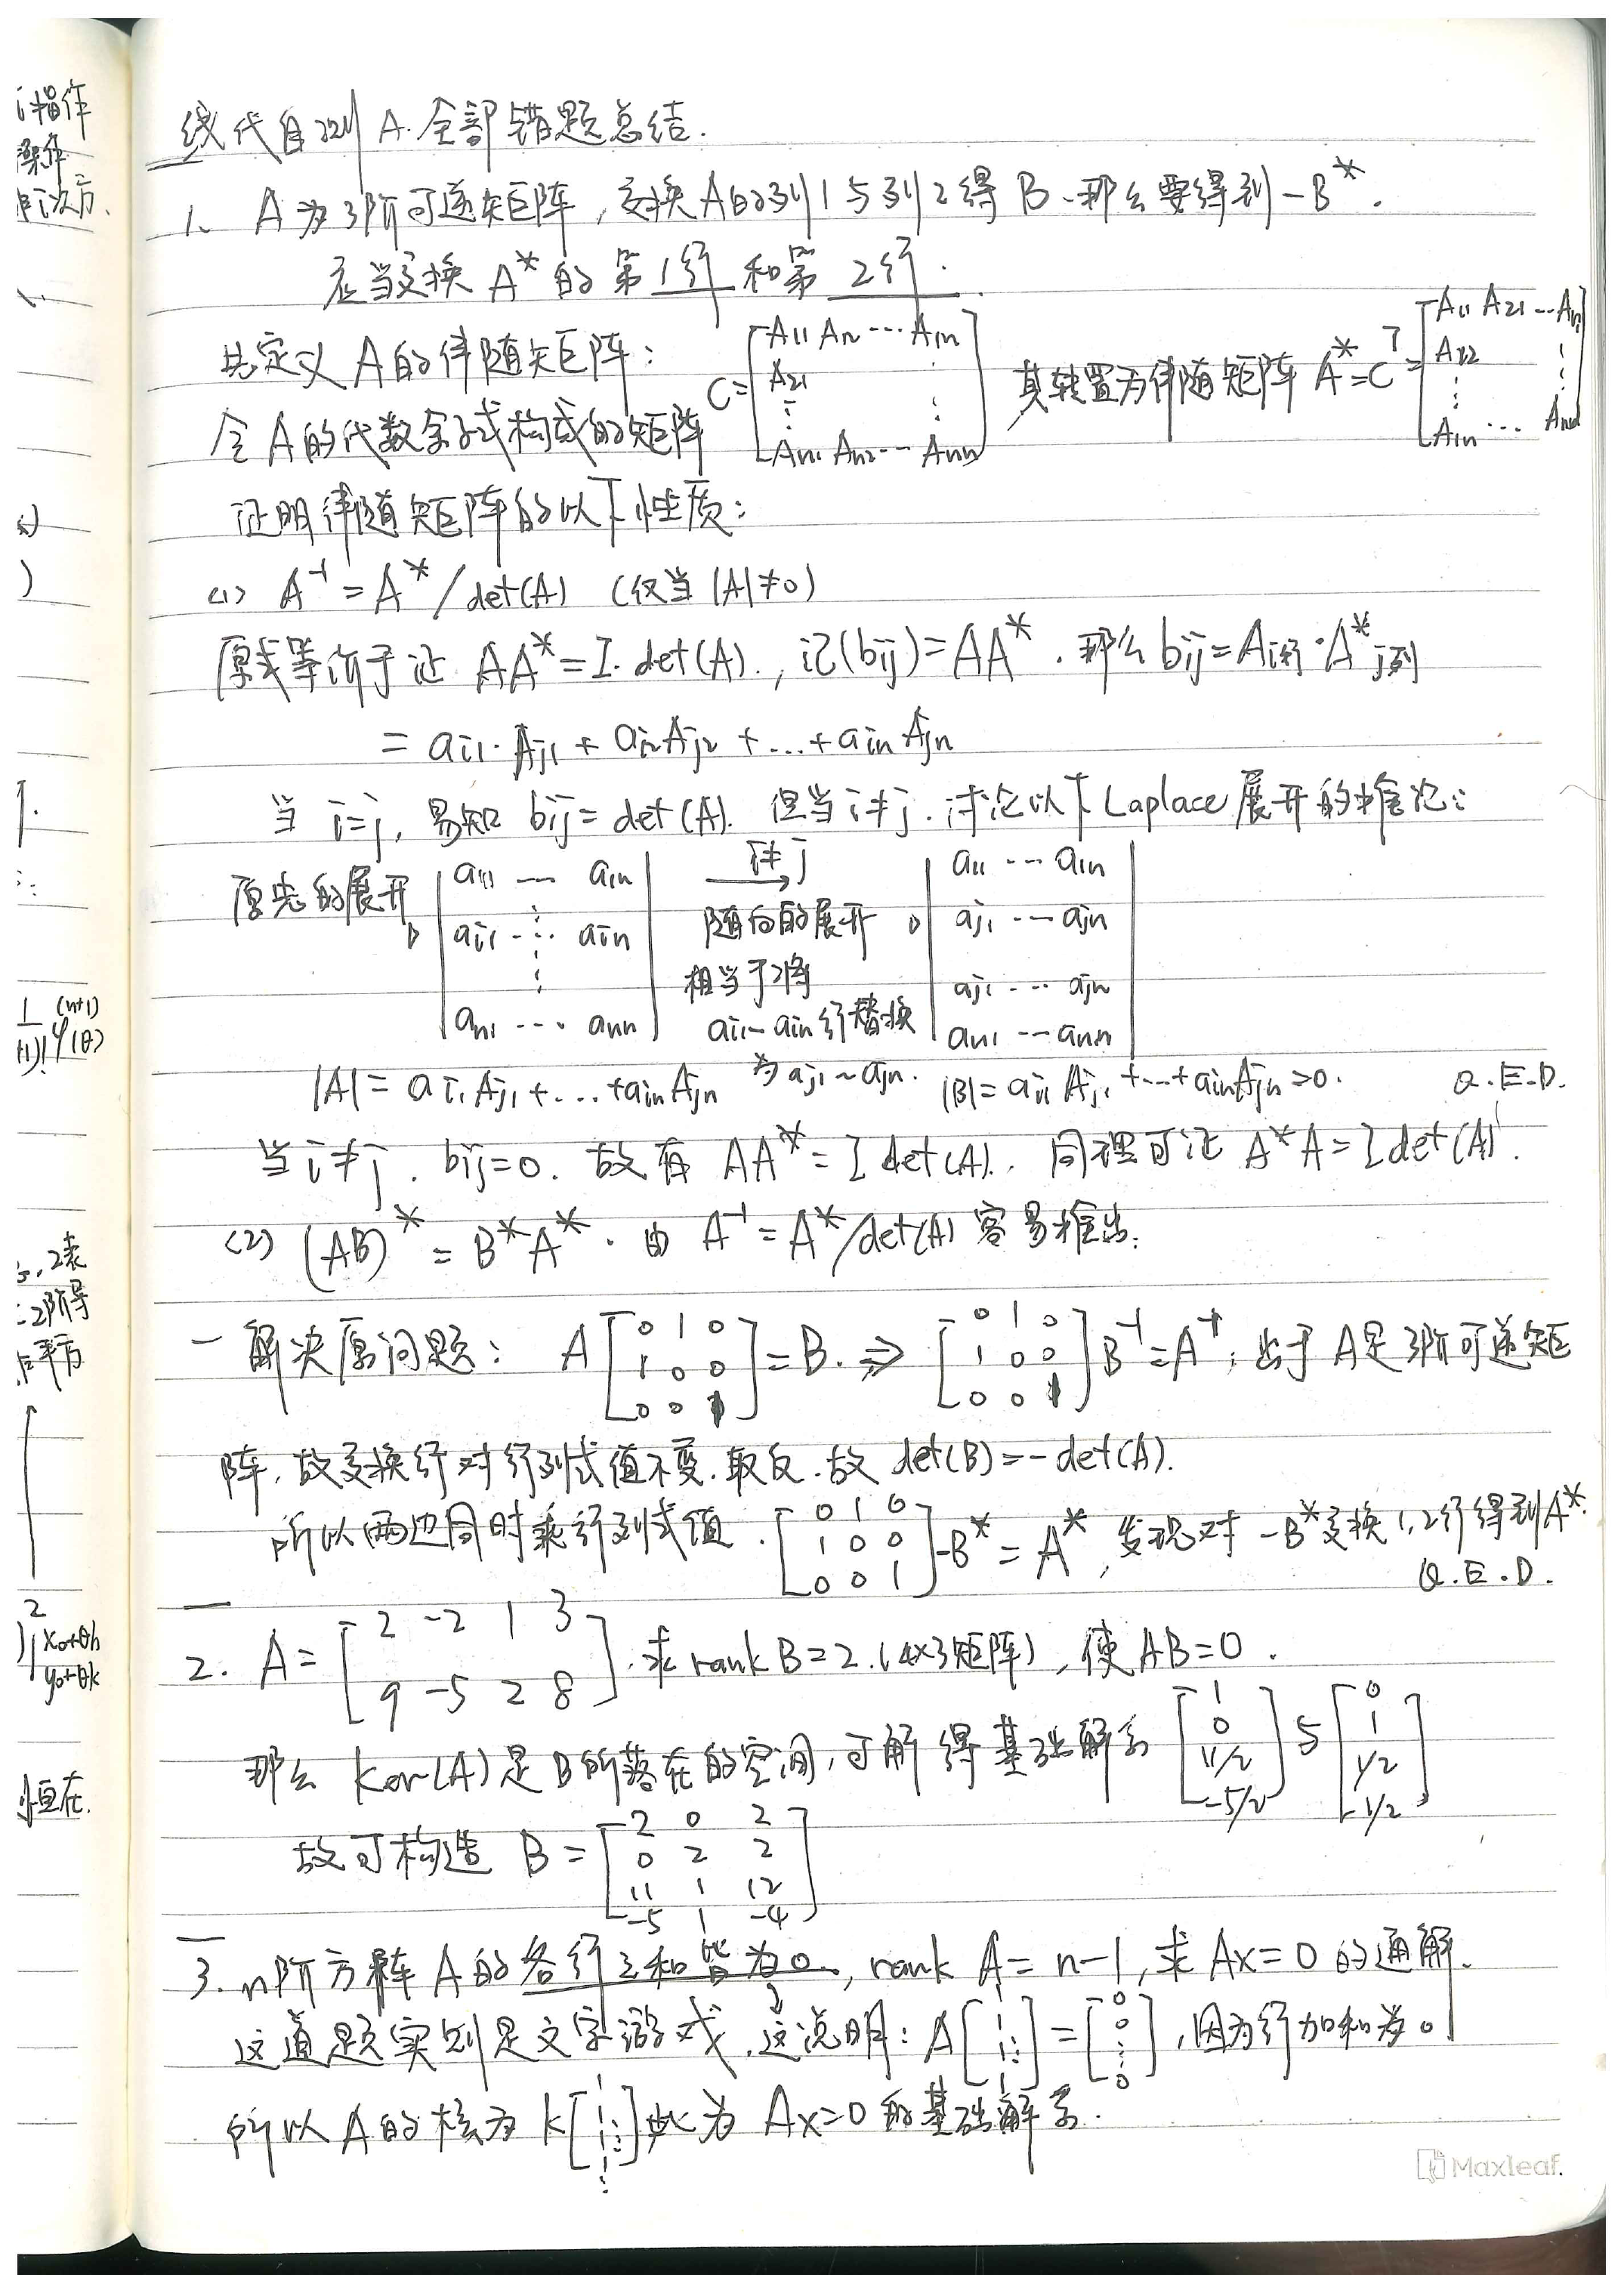 i操作
操作
次方.
线代自测A.全部错题总结.
1、A为3阶可逆矩阵,交换A的列1与列2得B、那么要得到-B*.
应当交换A*的第1行和第2行.
先定义A的伴随矩阵:
令A的代数余子式构成的矩阵 C=[A11 A12 ⋯ A1n; A21 ⋮ ⋮; An1 An2 ⋯ Ann] 其转置为伴随矩阵 A*=C^T=[A11 A21 ⋯ An1; A12 ⋮ ⋮; A1n ⋯ Ann]
证明伴随矩阵的以下性质:
(1) A^-1=A*/det(A) (仅当|A|≠0)
原式等价于证 AA*=I·det(A)., 记(bij)=AA*.那么bij=Ai行·A*j列
= ai1·Aj1+ai2Aj2+...+ainAjn
当i=j,易知bij=det(A).但当i≠j.讨论以下Laplace展开的推论:
原先的展开 |a11 ⋯ a1n; ai1 ⋯ ain; an1 ⋯ ann| i≠j→ 随后的展开相当于将ai1~ain行替换为aj1~ajn. |a11 ⋯ a1n; aj1 ⋯ ajn; aj1 ⋯ ajn; an1 ⋯ ann|
|A|=ai1Aj1+...+ainAjn |B|=ai1Aj1+⋯+ainAjn=0. Q.E.D.
当i≠j.bij=0.故有AA*=I det(A).,同理可证A*A=I det(A).
(2) (AB)*=B*A*.由A^-1=A*/det(A)容易推出.
一解决原问题: A[0 1 0; 1 0 0; 0 0 1]=B.⇒[0 1 0; 1 0 0; 0 0 1]B^-1=A^-1;由于A是3阶可逆矩
阵,故交换行对行列式值不变.取反.故det(B)=-det(A).
所以两边同时乘行列式值.[0 1 0; 1 0 0; 0 0 1]-B*=A*,发现对-B*交换1,2行得到A*.
Q.E.D.
2. A=[2 -2 1 3; 9 -5 2 8].求rank B=2.(4x3矩阵),使AB=0.
那么Ker(A)是B所落在的空间,可解得基础解系[1; 0; 11/2; -5/2]与[0; 1; 1/2; 1/2]
故可构造B=[2 0 2; 0 2 2; 11 1 12; -5 1 -4]
3. n阶方阵A的各行之和皆为0.,rank A=n-1,求Ax=0的通解.
这道题实则是文字游戏.这说明:A[1; 1; ⋮; 1]=[0; 0; ⋮; 0],因为行加和为0
所以A的核为k[1; 1; ⋮; 1]此为Ax=0的基础解系.
(n+1)
φ(θ)
2阶导
平方
2
x0+θh
y0+θk
恒在.
Maxleaf.